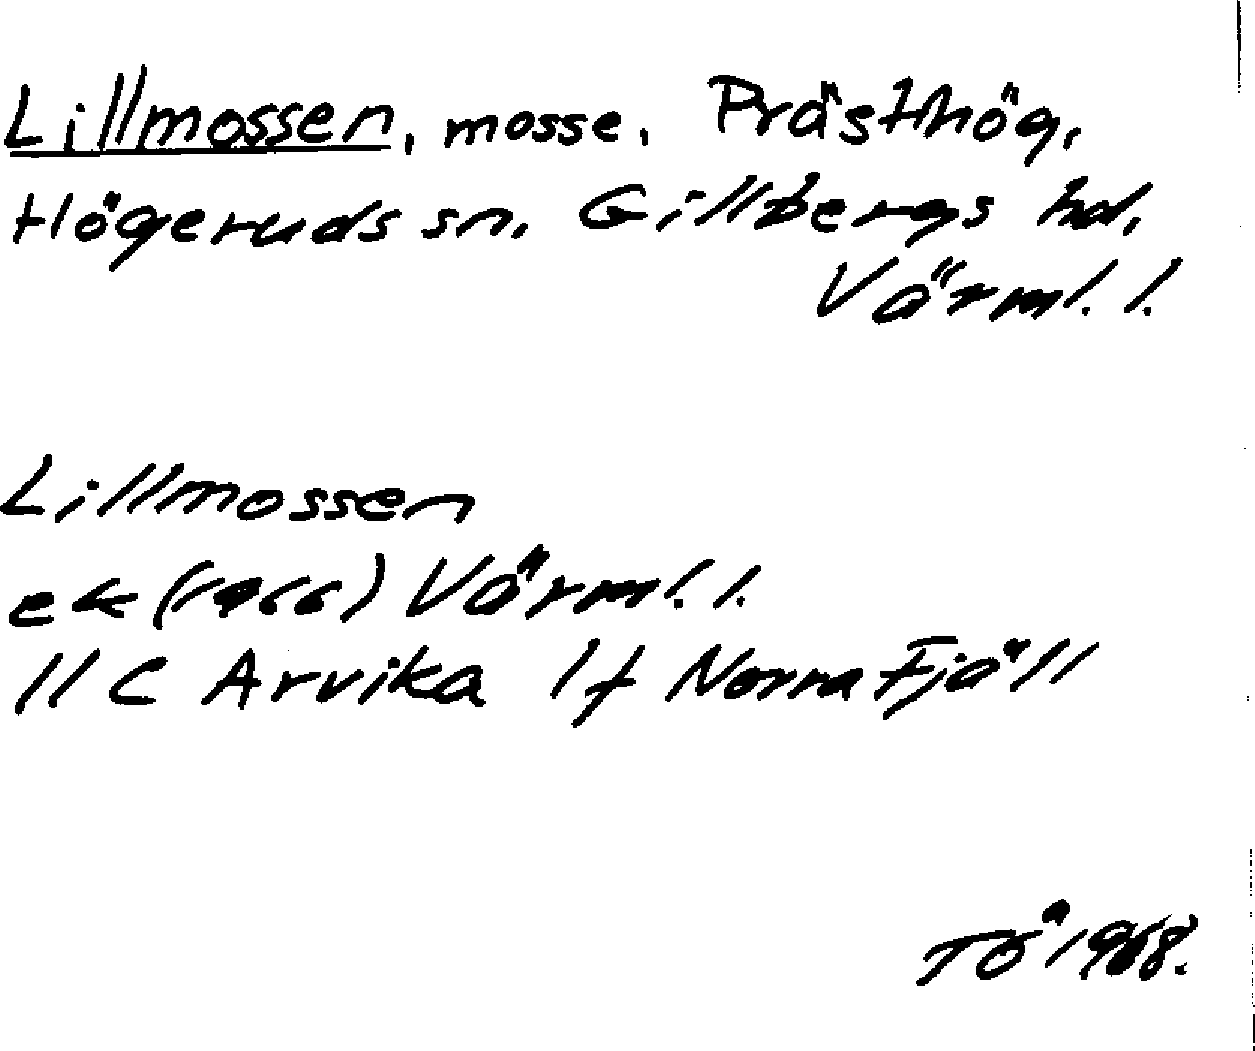 Lillmossen, mosse, Prästhög,
Högeruds sn, Gillbergs hd,
Värml. l.
Lillmossen
ek (1966) Värml. l.
11 C Arvika 1 f Norra Fjäll
TÖ 1968.